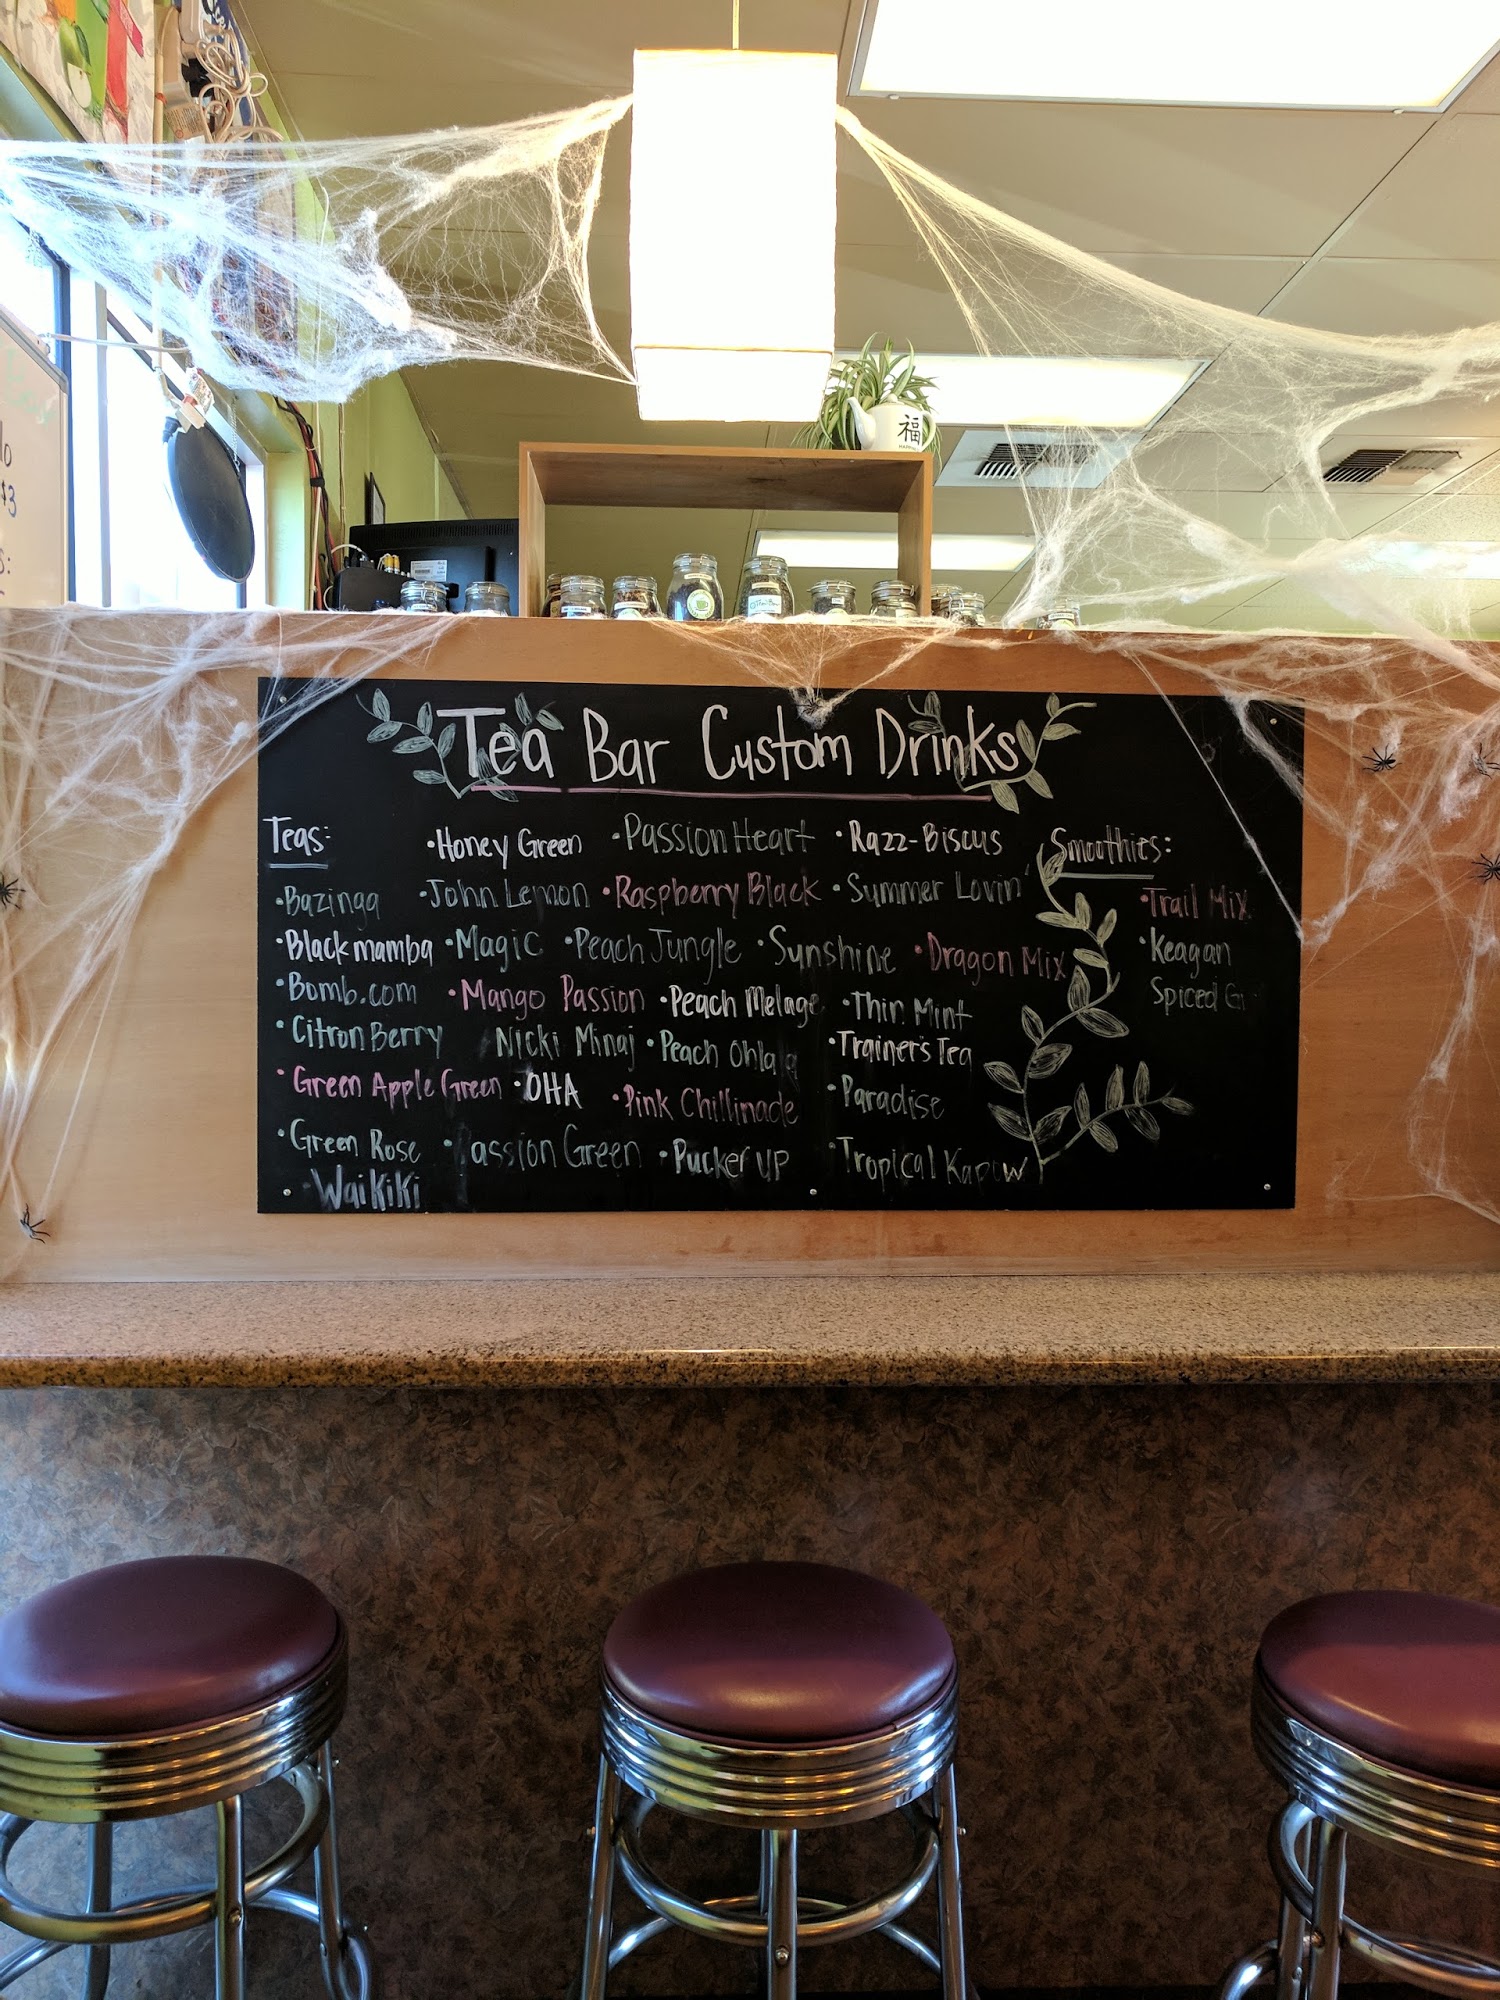 福
Tea Bar Custom Drinks
Teas:
•Bazinga
•Black mamba
•Bomb.com
•Citron Berry
•Green Apple Green
•Green Rose
•Waikiki
•Honey Green
•John Lemon
•Magic
•Mango Passion
Nicki Minaj
•OHA
•Passion Green
•Passion Heart
•Raspberry Black
•Peach Jungle
•Peach Melage
•Peach Ohlala
•Pink Chillinade
•Pucker UP
•Razz-Biscus
•Summer Lovin'
•Sunshine
•Dragon Mix
•Thin Mint
•Trainer's Tea
•Paradise
•Tropical Kapow
Smoothies:
•Trail Mix
•Keagan
Spiced
$3